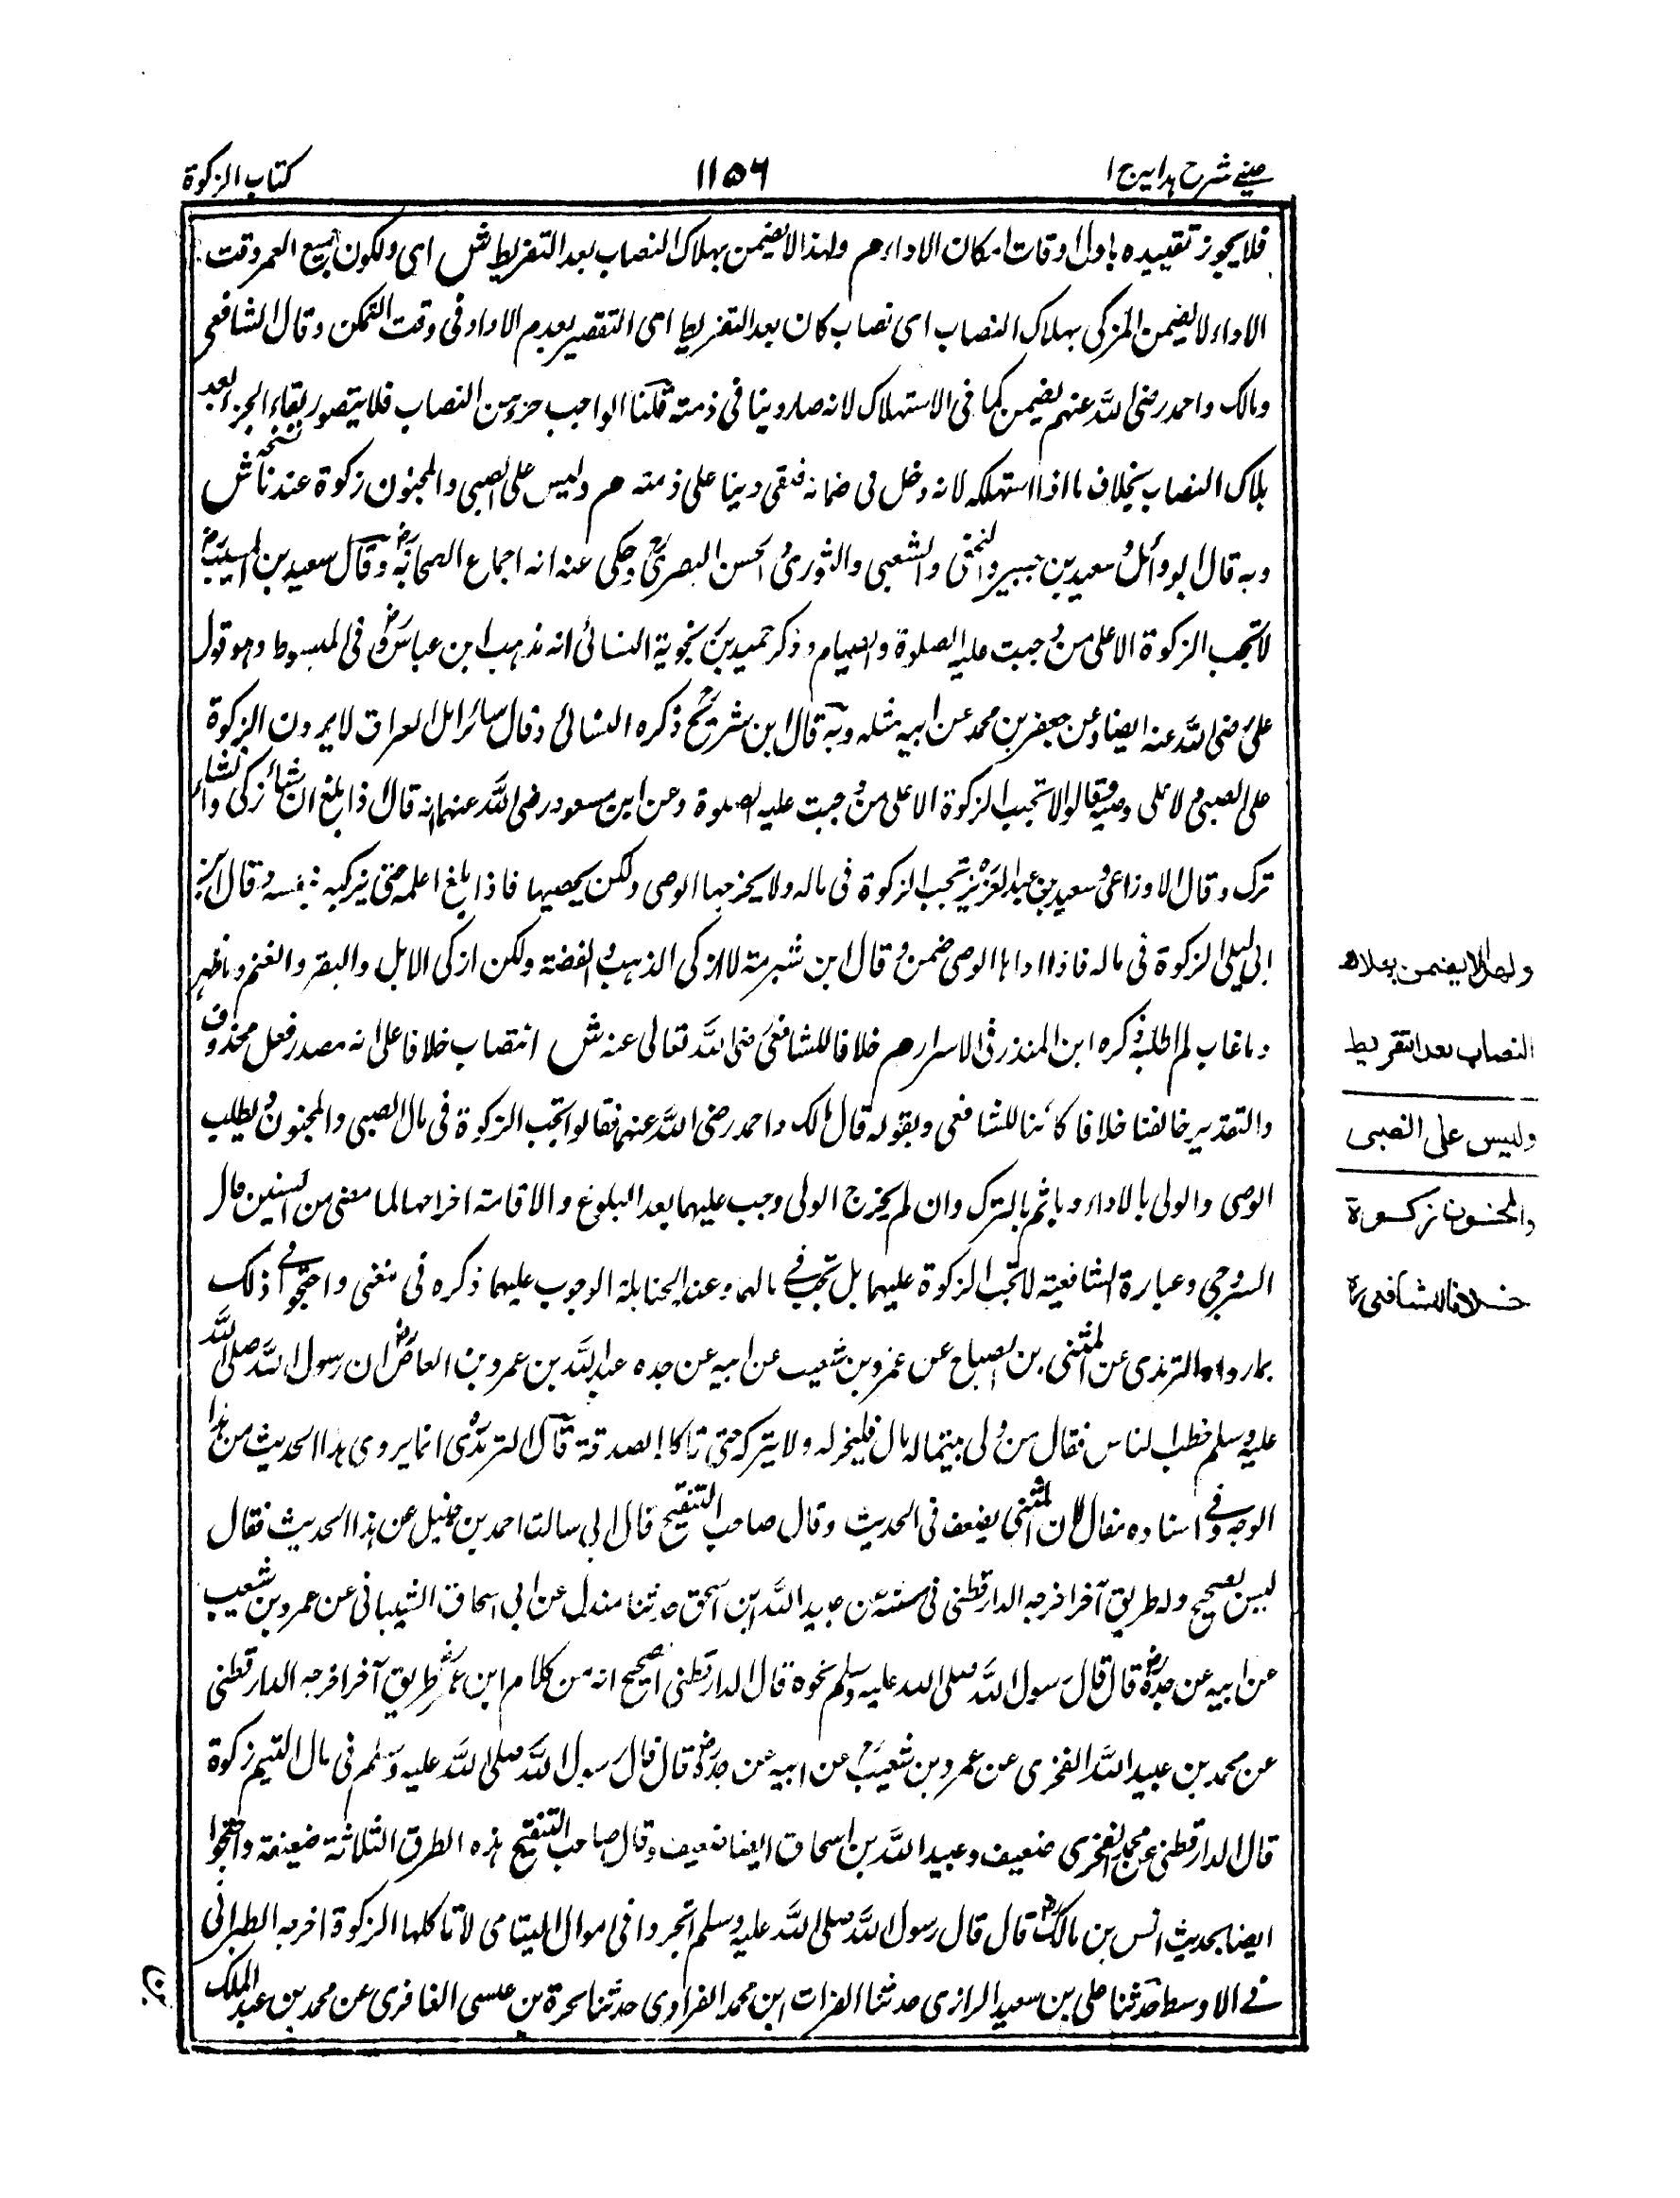 عینے شرح ہدایہ ج ١
١١٥٦
کتاب الزکوة
فلا یجوز تقییدہ باول اوقات امکان الاداء م ولہذا لا یضمن بہلاک النصاب بعد التفریط ش ای ولکون جمیع العمر وقت
الاداء لا یضمن المزکی بہلاک النصاب ای نصاب کان بعد التفریط ای التقصیر بعدم الاداء فی وقت التمکن وقال الشافعی
ومالک واحمد رضی اللہ عنہم یضمن کما فی الاستہلاک لانہ صار دینا فی ذمتہ قلنا الواجب جزء من النصاب فلا یتصور بقاء الجزء بعد
ہلاک النصاب بخلاف ما اذا استہلکہ لانہ دخل فی ضمانہ فبقی دینا علی ذمتہ م ولیس علی الصبی والمجنون زکوة عندنا ش
وبہ قال ابو وائل وسعید بن جبیر والنخعی والشعبی والثوری والحسن البصری وحکی عنہ انہ اجماع الصحابة وقال سعید بن المسیب
لا تجب الزکوة الا علی من وجبت علیہ الصلوة والصیام وذکر حمید بن زنجویة النسائی انہ مذہب ابن عباس وفی المبسوط وہو قول
علی رضی اللہ عنہ ایضا وعن جعفر بن محمد عن ابیہ مثلہ وبہ قال ابن شریح ذکرہ النسائی وقال سائر اہل العراق لا یرون الزکوة
علی الصبی ولا علی وصیہ فقالوا لا تجب الزکوة الا علی من وجبت علیہ الصلوة وعن ابن مسعود رضی اللہ عنہما انہ قال اذا بلغ ان شاء زکی وان شاء
ترک وقال الاوزاعی وسعید بن عبد العزیز تجب الزکوة فی مالہ ولا یخرجہا الوصی ولکن یحصیہا فاذا بلغ اعلمہ حتی یزکیہ بنفسہ وقال ابن
ابی لیلی الزکوة فی مالہ فاذا اداہا الوصی ضمن وقال ابن شبرمة لا ازکی الذہب والفضة ولکن ازکی الابل والبقر والغنم وما ظہر
وما غاب لم اطلبہ ذکرہ ابن المنذر فی الاسرار م خلافا للشافعی رضی اللہ تعالی عنہ ش انتصاب خلافا علی انہ مصدر فعل محذوف
والتقدیر خالفنا خلافا کائنا للشافعی وبقولہ قال مالک واحمد رضی اللہ عنہما فقالوا تجب الزکوة فی مال الصبی والمجنون ویطلب
الوصی والولی بالاداء ویاثم بالترک وان لم یخرج الولی وجب علیہما بعد البلوغ والاقامة اخراجہا لما مضی من السنین قال
السروجی وعبارة الشافعیة لا تجب الزکوة علیہما بل تجب فی مالہما وعند الحنابلة الوجوب علیہما ذکرہ فی مغنی واحتجوا فی ذلک
بما رواہ الترمذی عن المثنی بن الصباح عن عمرو بن شعیب عن ابیہ عن جدہ عبد اللہ بن عمرو بن العاص ان رسول اللہ صلی اللہ
علیہ وسلم خطب الناس فقال من ولی یتیما لہ مال فلیتجر لہ ولا یترکہ حتی تاکلہ الصدقة قال الترمذی انما یروی ہذا الحدیث من ہذا
الوجہ وفی اسنادہ مقال لان المثنی یضعف فی الحدیث وقال صاحب التنقیح قال ابی سالت احمد بن حنبل عن ہذا الحدیث فقال
لیس بصحیح ولہ طریق آخر اخرجہ الدارقطنی فی سننہ عن عبید اللہ ابن اسحق حدثنا مندل عن ابی اسحاق الشیبانی عن عمرو بن شعیب
عن ابیہ عن جدہ قال قال رسول اللہ صلی اللہ علیہ وسلم نحوہ قال الدارقطنی الصحیح انہ من کلام ابن عمر طریق آخر اخرجہ الدارقطنی
عن محمد بن عبید اللہ الفخری عن عمرو بن شعیب عن ابیہ عن جدہ قال قال رسول اللہ صلی اللہ علیہ وسلم فی مال الیتیم زکوة
قال الدارقطنی عن محمد الفخری ضعیف وعبید اللہ بن اسحاق ایضا ضعیف وقال صاحب التنقیح ہذہ الطرق الثلاثة ضعیفة واحتجوا
ایضا بحدیث انس بن مالک قال قال رسول اللہ صلی اللہ علیہ وسلم اتجروا فی اموال الیتامی لا تاکلہا الزکوة اخرجہ الطبرانی
فے الاوسط حدثنا علی بن سعید الرازی حدثنا الفرات ابن محمد الفراوی حدثنا سحرة بن عیسی الغافری عن محمد بن عبد الملک
بن
ولہذا لا یضمن بہلاک
النصاب بعد التفریط
ولیس علی الصبی
والمجنون زکوة
خلافا للشافعی رح